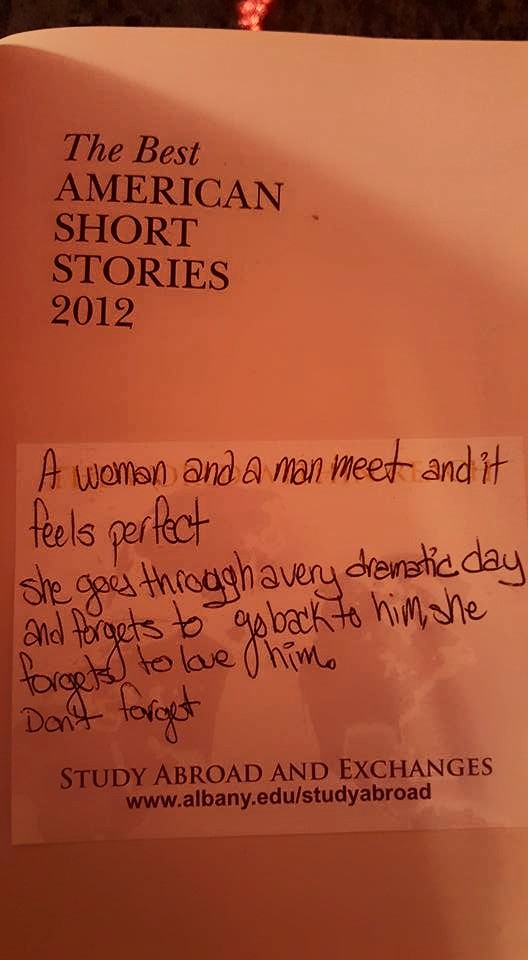 The Best
AMERICAN
SHORT
STORIES
2012
A woman and a man meet and it
feels perfect
she goes through a very dramatic day
and forgets to go back to him, she
forgets to love him.
Don't forget
STUDY ABROAD AND EXCHANGES
www.albany.edu/studyabroad